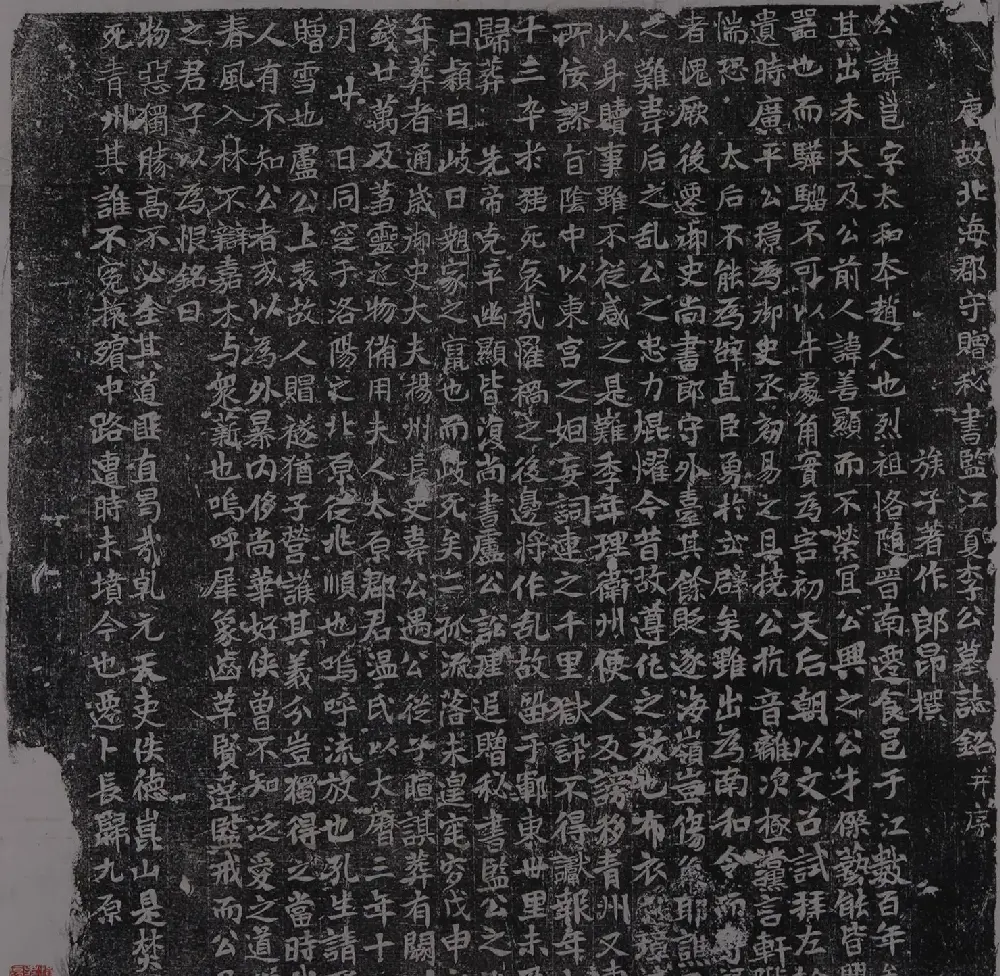 唐故北海郡守贈秘書監江夏李公墓誌銘并序
族子著作郎昂撰
公諱邕字太和本趙人也烈祖恪隨晉南遷食邑于江數百年
其出未大及公前人諱善顯而不榮宜公興之公才傑藝能皆
器也而驊騮不可以牛處角實為害初天后朝以文召試拜左
遺時廣平公璟為御史丞劾易之且撓公抗音離次極黨言軒
惴恐太后不能為辭直臣勇於立辟矣雖出為南和令而
者愧厥後遷御史尚書郎守外臺其餘貶逐海嶺豈傷後耶譙
之難韋后之乱公之忠力焜燿今昔故遵化之放也布衣璋
以身贖事雖不從感之是難季年理衛州使人及謗移青州又
所佞謬旨陰中以東宮之姻妄詞連之千里獄訊不得讞報年
十三卒於強死哀哉罹禍之後邊將作乱故留于鄆東卅里未
歸葬先帝克平幽顯皆復尚書盧公訟理追贈秘書監公之
曰穎曰岐曰翹家之寶也而岐死矣二孤流落未遑宅穸戊申
年葬者通歲御史大夫揚州長史韋公遇公從子暄諆葬有闕
錢廿萬及芻靈冱物俻用夫人太原郡君温氏以大曆三年十
月廿日同窆于洛陽之北原從兆順也嗚呼流放也孔生請
贈雪也盧公上表故人賵襚猶子營護其義分豈獨得之當時
人有不知公者或以為外暴內侈尚華好俠曾不知泛愛之道
春風入林不辯嘉木与眾薪也嗚呼犀象齒草賢達監戒而公
之君子以為恨銘曰
物惡獨勝高不必全其道匪直曷哉乾元天吏佚德崑山是焚
死青州其誰不冤旅殯中路遭時未墳今也遷卜長歸九原